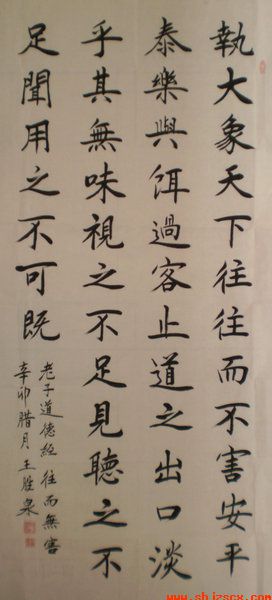 執大象天下往往而不害安平
泰樂與餌過客止道之出口淡
乎其無味視之不足見聽之不
足聞用之不可既
老子道德經往而無害
辛卯腊月王胜泉
www.shjzscx.com